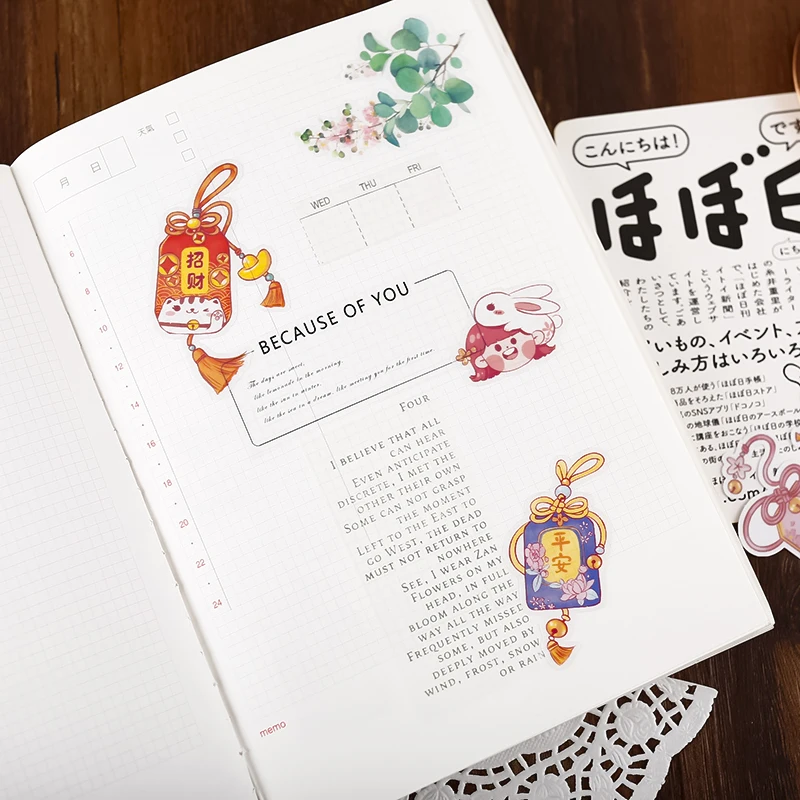 天気
月 日
WED THU FRI
6
8
10
12
14
16
18
20
22
24
招
财
BECAUSE OF YOU
The days are sweet,
like lemonade in the morning,
like the sun in winter,
like the sea in a dream, like meeting you for the first time
FOUR
I BELIEVE THAT ALL
CAN HEAR
EVEN ANTICIPATE
DISCRETE, I MET THE
OTHER THEIR OWN
SOME CAN NOT GRASP
THE MOMENT
LEFT TO THE EAST TO
GO WEST, THE DEAD
MUST NOT RETURN TO
NOWHERE
SEE, I WEAR ZAN
FLOWERS ON MY
HEAD, IN FULL
BLOOM ALONG THE
WAY ALL THE WAY
FREQUENTLY MISSED
SOME, BUT ALSO
DEEPLY MOVED BY
WIND, FROST, SNOW
OR RAIN
平
安
memo
こんにちは!
です
ほぼ日
にち
の糸井重里が
はじめた会社
で、「ほぼ日刊
イトイ新聞」
というウェブサ
イトを運営し
ています。ごあ
いさつとして、
わたしたちの
紹介
いもの、イベント、
しみ方はいろいろ
8万人が使う「ほぼ日手帳」
品をそろえた「ほぼ日ストア」
のSNSアプリ「ドコノコ」
の地球儀「ほぼ日のアースボール
講座をおこなう「ほぼ日の学校